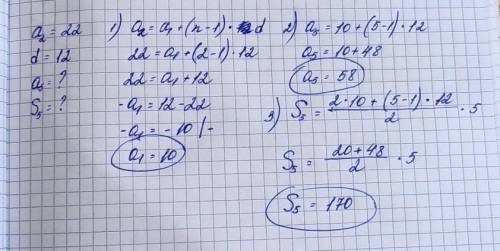 a₂ = 22
d = 12
a₅ = ?
S₅ = ?
1) a₂ = a₁ + (n-1) · d
22 = a₁ + (2-1) · 12
22 = a₁ + 12
-a₁ = 12 - 22
-a₁ = -10 | -
a₁ = 10
2) a₅ = 10 + (5-1) · 12
a₅ = 10 + 48
a₅ = 58
3) S₅ = (2·10 + (5-1) · 12)/2 · 5
S₅ = (20 + 48)/2 · 5
S₅ = 170